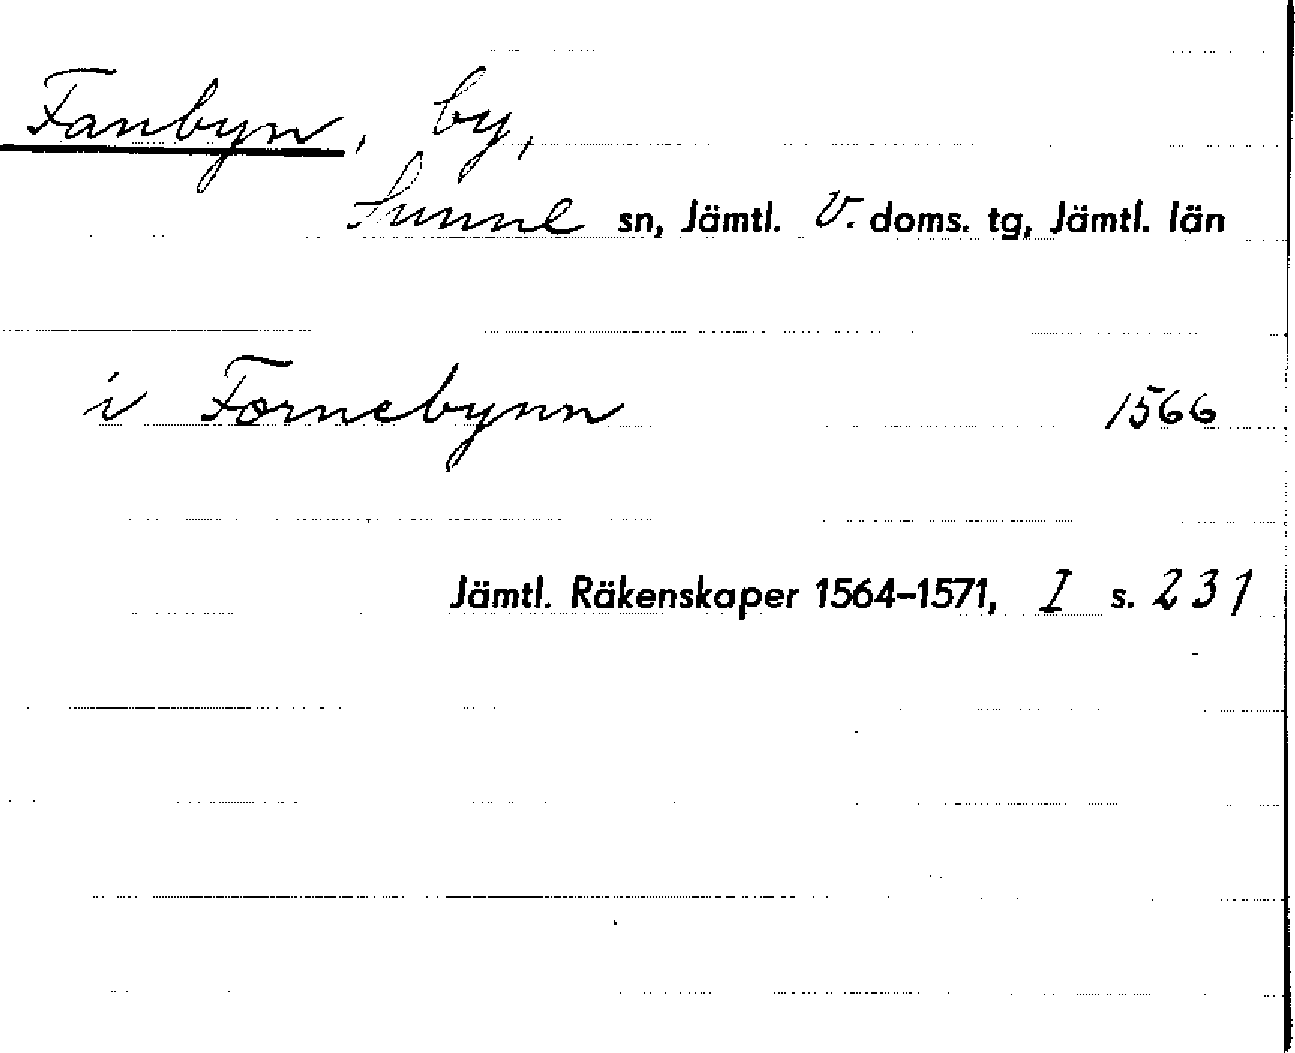 Fanbyn, by,
Sunne sn, Jämtl. V. doms. tg, Jämtl. län
i Fornebynn 1566
Jämtl. Räkenskaper 1564-1571, I s. 231